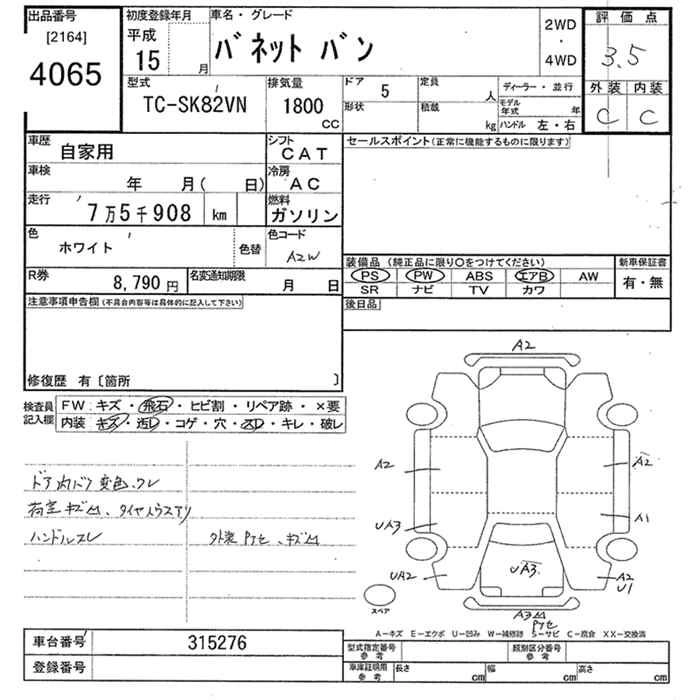 出品番号
[2164]
4065
初度登録年月
平成
15 月
車名・グレード
バネット バン
2WD
・
4WD
評価点
3.5
外装 内装
C C
型式
TC-SK82VN
排気量
1800
CC
ドア 5
形状
定員 人
積載 kg
ディーラー・並行
モデル年式 年
ハンドル 左・右
車歴 自家用
シフト CAT
車検 年 月( 日)
冷房 AC
走行 7万5千908 km
燃料 ガソリン
色 ホワイト 色替
色コード A2W
R券 8,790 円
名変通知期限 月 日
セールスポイント(正常に機能するものに限ります)
装備品 (純正品に限り○をつけてください)
PS PW ABS エアB AW
SR ナビ TV カワ
新車保証書
有・無
後日品
注意事項申告欄(不具合内容等は具体的に記入して下さい)
修復歴 有〔箇所 〕
検査員記入欄
FW:キズ・飛石・ヒビ割・リペア跡・×要
内装:キズ・汚レ・コゲ・穴・スレ・キレ・破レ
ドア内バリ変色、ワレ
荷室キズ凹、タイヤハウスアリ
ハンドルスレ
外装 Pケセ、キズ凹
A2
A2
A2
UA3
A1
UA2
UA3
A2
U1
スペア
A3凹
Pケセ
A-キズ E-エクボ U-凹み W-補修跡 S-サビ C-腐食 XX-交換済
車台番号 315276
登録番号
型式指定番号 参考
類別区分番号 参考
車庫証明用 参考
長さ cm 幅 cm 高さ cm